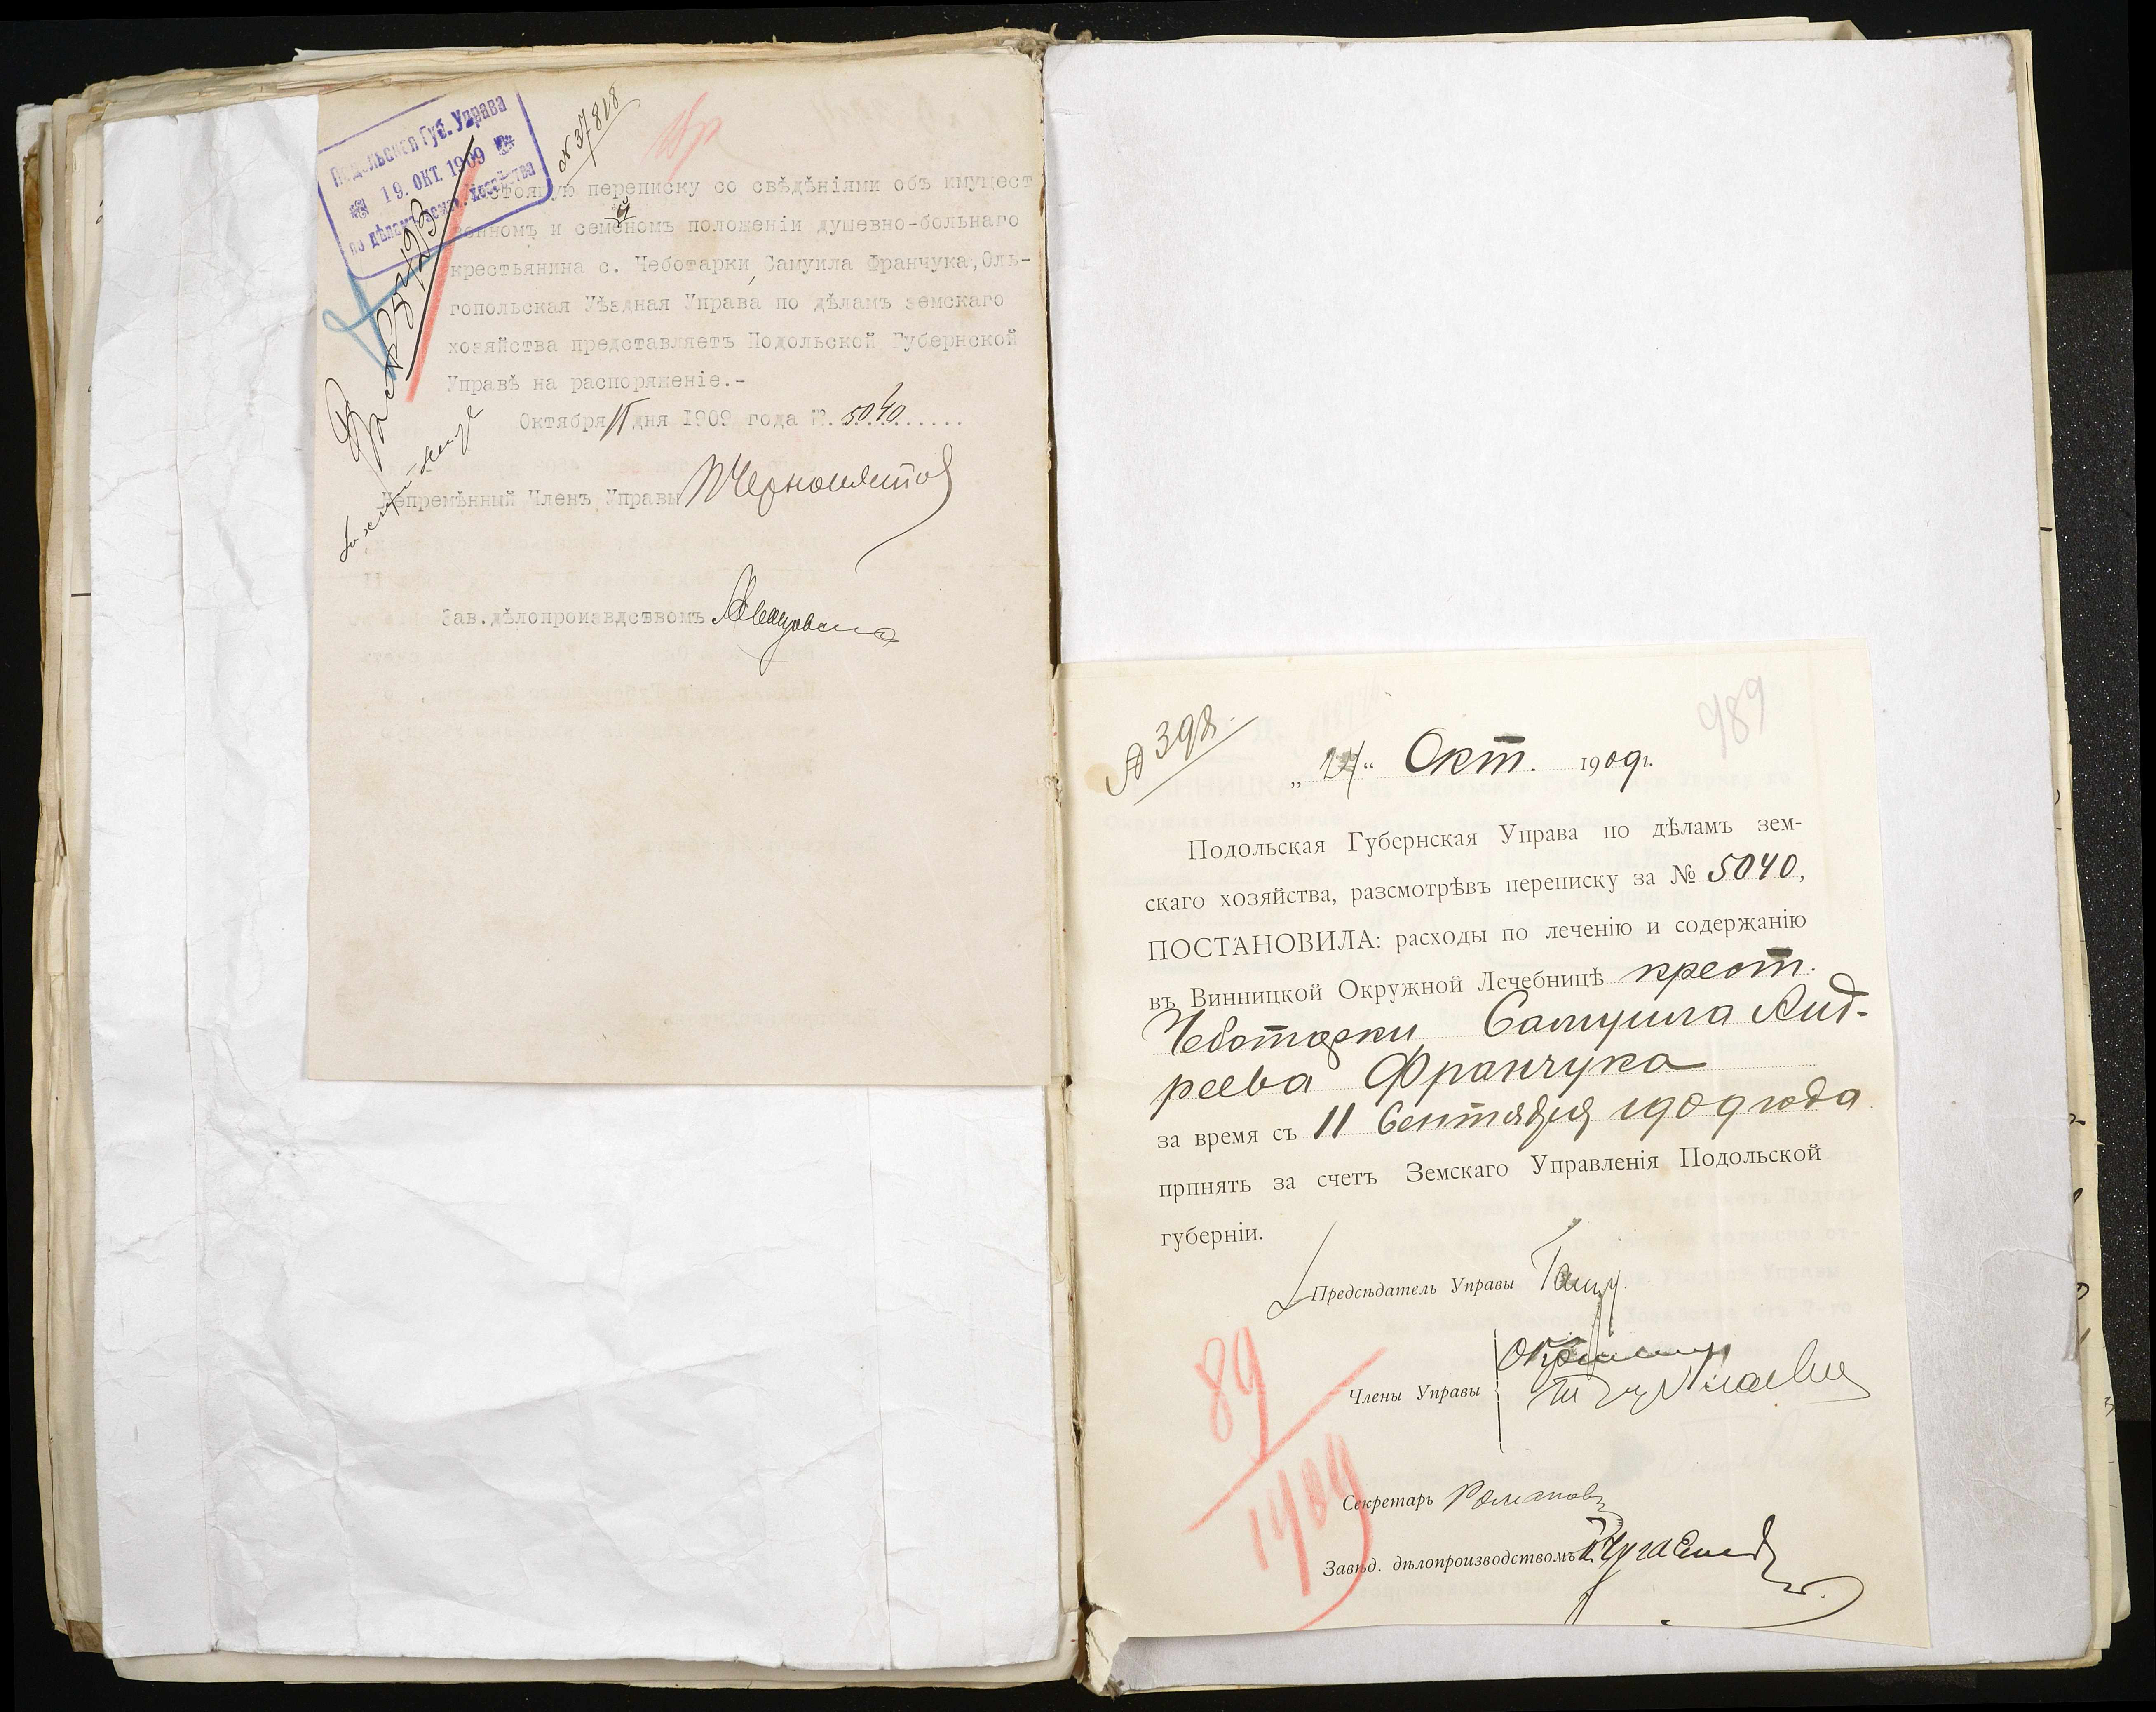 Подольская Губ. Управа
19. ОКТ. 1909
по дѣламъ земс. хозяйства
№ 37818
переписку со свѣдѣніями объ имущест
венномъ и семейномъ положеніи душевно-больнаго
крестьянина с. Чеботарки, Самуила Франчука, Оль-
гопольская Уѣздная Управа по дѣламъ земскаго
хозяйства представляетъ Подольской Губернской
Управѣ на распоряженіе.-
Октября 15 дня 1909 года №. 5040......
Непремѣнный Членъ Управы
Зав.дѣлопроизвдствомъ
989
№ 398.
"24" Окт. 1909 г.
Подольская Губернская Управа по дѣламъ зем-
скаго хозяйства, разсмотрѣвъ переписку за № 5040,
ПОСТАНОВИЛА: расходы по леченію и содержанію
въ Винницкой Окружной Лечебницѣ крест.
Чеботарки Самуила Анд-
реева Франчука
за время съ 11 Сентября 1909 года
прпнять за счетъ Земскаго Управленія Подольской
губерніи.
Предсѣдатель Управы
Члены Управы
89
1909
Секретарь Романовъ
Завѣд. дѣлопроизводствомъ